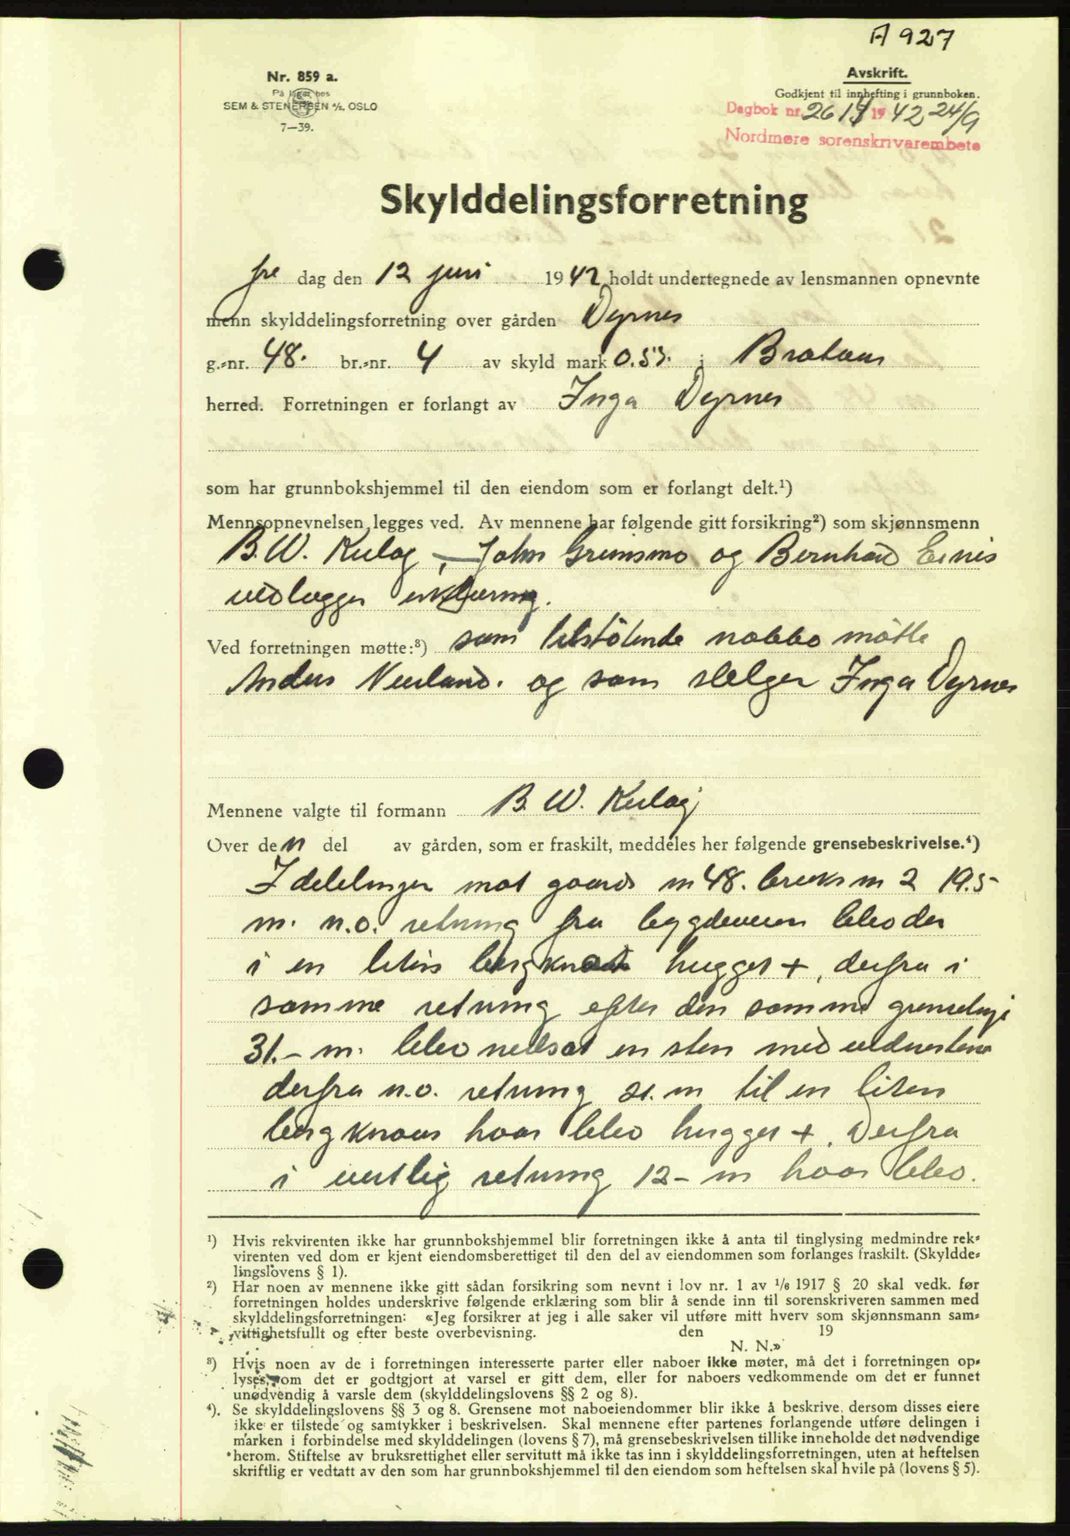 A 927
Nr. 859 a.
På lager hos
SEM & STENERSEN A/S, OSLO
7—39.
Avskrift.
Godkjent til innhefting i grunnboken.
Dagbok nr. 2614 1942 24/9
Nordmøre sorenskrivarembete
Skylddelingsforretning
fre dag den 12 juni 1942 holdt undertegnede av lensmannen opnevnte
menn skylddelingsforretning over gården Dyrnes
g.-nr. 48. br.-nr. 4 av skyld mark 0.53. i
herred. Forretningen er forlangt av Inga Dyrnes
som har grunnbokshjemmel til den eiendom som er forlangt delt.¹)
Mennsopnevnelsen legges ved. Av mennene har følgende gitt forsikring²) som skjønnsmenn
B. W. Kulø, John Grimsmo og Bernhard
vedlegger erklæring.
Ved forretningen møtte:³) som tilstøtende nabbo møtte
Anders Neerland. og som selger Inga Dyrnes
Mennene valgte til formann B. W. Kulø
Over den del av gården, som er fraskilt, meddeles her følgende grensebeskrivelse.⁴)
I delelinjen mot gaards nr 48. bruks nr 2 19.5
m. n.o. retning fra bygdeveien blev der
i en liten bergknat hugget +, derfra i
samme retning efter den samme grenselinje
31.- m. blev nedsat en sten med vidnestene
derfra n.o. retning 21. m til en liten
bergknaus hvor blev hugget +. Derfra
i vestlig retning 12- m hvor blev.
¹) Hvis rekvirenten ikke har grunnbokshjemmel blir forretningen ikke å anta til tinglysing medmindre rek-
virenten ved dom er kjent eiendomsberettiget til den del av eiendommen som forlanges fraskilt. (Skyldde-
lingslovens § 1).
²) Har noen av mennene ikke gitt sådan forsikring som nevnt i lov nr. 1 av 1/6 1917 § 20 skal vedk. før
forretningen holdes underskrive følgende erklæring som blir å sende inn til sorenskriveren sammen med
skylddelingsforretningen: «Jeg forsikrer at jeg i alle saker vil utføre mitt hverv som skjønnsmann sam-
vittighetsfullt og efter beste overbevisning. den 19
N. N.»
³) Hvis noen av de i forretningen interesserte parter eller naboer ikke møter, må det i forretningen op-
lyses om det er godtgjort at varsel er gitt dem, eller for naboers vedkommende om det er funnet
unødvendig å varsle dem (skylddelingslovens §§ 2 og 8).
⁴). Se skylddelingslovens §§ 3 og 8. Grensene mot naboeiendommer blir ikke å beskrive, dersom disses eiere
ikke er tilstede og samtykker i beskrivelsen. Skal mennene efter partenes forlangende utføre delingen i
marken i forbindelse med skylddelingen (lovens § 7), må grensebeskrivelsen tillike inneholde det nødvendige
herom. Stiftelse av bruksrettighet eller servitutt må ikke tas inn i skylddelingsforretningen, uten at heftelsen
skriftlig er vedtatt av den som har grunnbokshjemmel til den eiendom som heftelsen skal hvile på (lovens § 5).